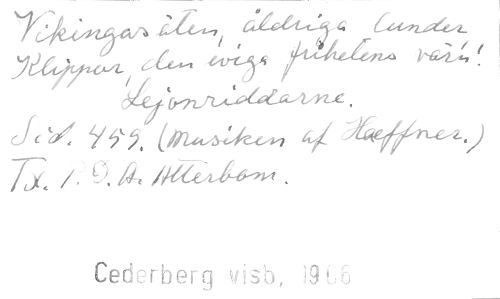 Vikingasäten, åldriga lunder
Klippor, den eviga frihetens värn!
Lejonriddarne.
Sid. 459. (Musiken af Hæffner.)
Tx. P. D. A. Atterbom.
Cederberg visb, 1966